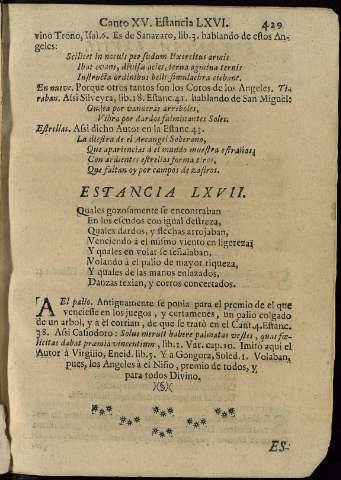 Canto XV. Estancia LXVI. 429
vino Trono, Isai.6. Es de Sanazaro, lib.3. hablando de estos An-
geles:
Scilicet in notuls per sudum Exercitus armis
Ibat ovans, divisa acies, terna agmina ternis
Instructa ordinibus belli simulachra ciebant.
En nueve. Porque otros tantos son los Coros de los Angeles. Ti-
raban. Assi Silveyra, lib.18. Estanc.41. hablando de San Miguel:
Guiera por vanderas arreboles,
Vibra por dardos fulminantes Soles.
Estrellas. Assi dicho Autor en la Estanc.43.
La diestra de el Arcangel Soberano,
Que apariencias á el mundo muestra estrañas;
Con ardientes estrellas forma tiros,
Que saltan oy por campos de zafiros.
ESTANCIA LXVII.
Quales gozosamente se encontraban
En los escudos con igual destreza,
Quales dardos, y flechas arrojaban,
Venciendo á el mismo viento en ligereza;
Y quales en volar se señalaban,
Volando á el palio de mayor riqueza,
Y quales de las manos enlazados,
Danzas texian, y corros concertados.
A El palio. Antiguamente se ponia para el premio de el que
venciesse en los juegos, y certamenes, un palio colgado
de un arbol, y á el corrian, de que se trató en el Cant.4.Estanc.
38. Assi Casiodoro: Solus meruit habere palmatas vestes, quas fœ-
licitas dabat præmia vincentium, lib.1. Var. cap.10. Imitó aqui el
Autor à Virgilio, Eneid. lib.5. Y a Gongora, Soled.1. Volaban,
pues, los Angeles à el Niño, premio de todos, y
para todos Divino.
)(§)(
ES-